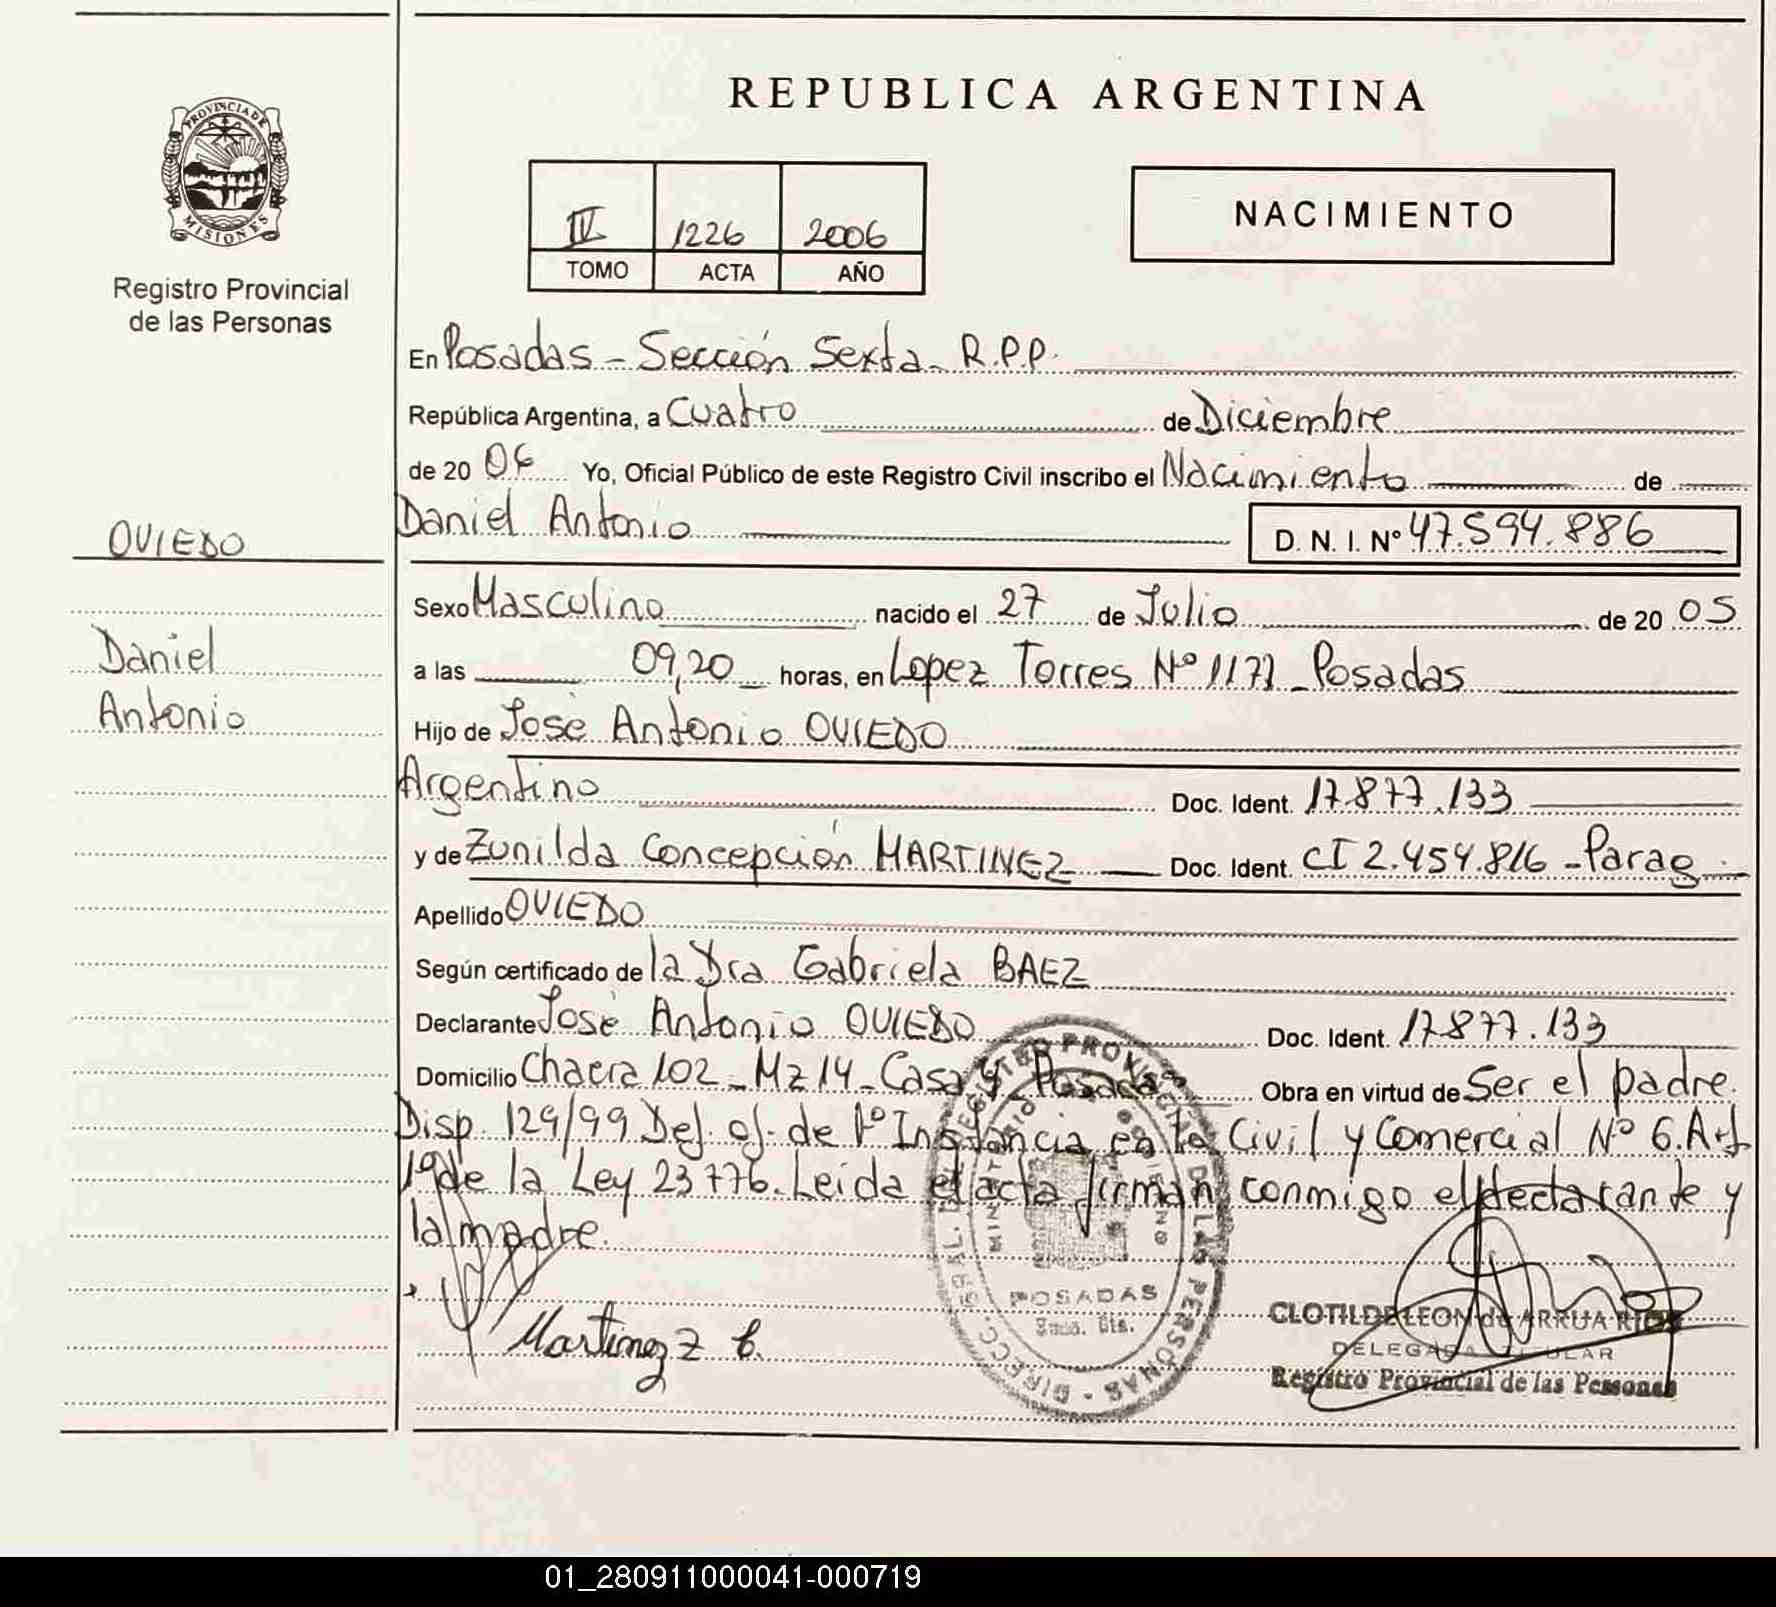 REPUBLICA ARGENTINA
PROVINCIA DE
MISIONES
Registro Provincial
de las Personas
IV 1226 2006
TOMO ACTA AÑO
NACIMIENTO
En Posadas - Sección Sexta - R.P.P.
República Argentina, a Cuatro de Diciembre
de 20 06 Yo, Oficial Público de este Registro Civil inscribo el Nacimiento de
OVIEDO
Daniel Antonio D. N. I. Nº 47.594.886
Sexo Masculino nacido el 27 de Julio de 20 05
Daniel
a las 09,20 horas, en Lopez Torres Nº 1177 - Posadas
Antonio
Hijo de José Antonio OVIEDO
Argentino Doc. Ident. 17.877.133
y de Zunilda Concepción MARTINEZ Doc. Ident. CI 2.454.816 - Parag
Apellido OVIEDO
Según certificado de la Dra Gabriela BAEZ
Declarante José Antonio OVIEDO Doc. Ident. 17.877.133
Domicilio Chacra 102 - Mz 14 - Casa Posadas Obra en virtud de Ser el padre.
Disp. 129/99 de 1º Instancia en lo Civil y Comercial Nº 6. Art
1º de la Ley 23776. Leida el acta firman conmigo el declarante y
la madre.
Martinez
DIRECC. GRAL. DEL REGISTRO PROVINCIAL DE LAS PERSONAS
MINISTERIO DE GOBIERNO
POSADAS
CLOTILDE LEON de ARRUA RIOS
DELEGADA TITULAR
Registro Provincial de las Personas
01_280911000041-000719